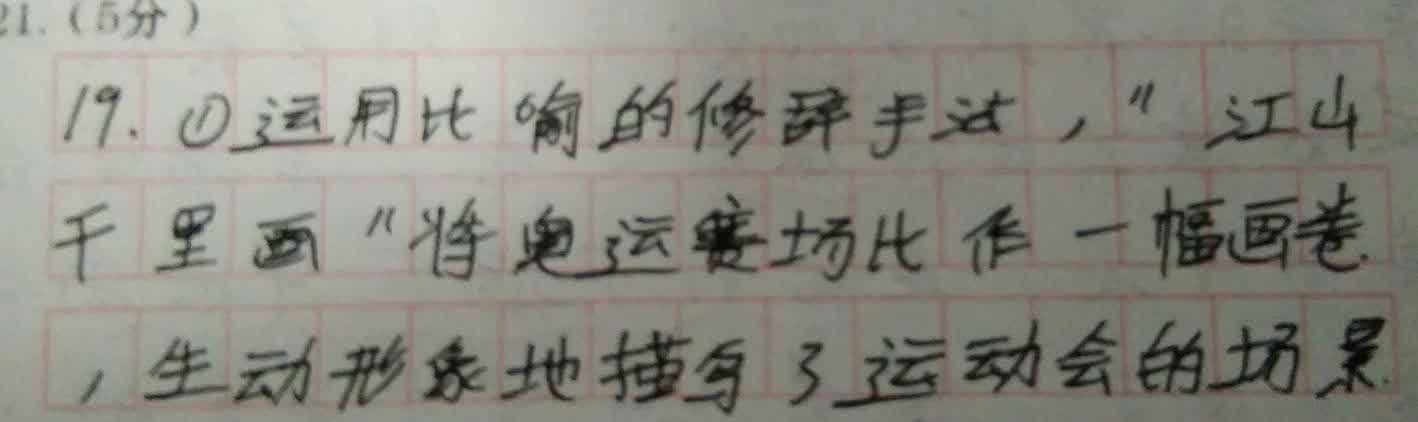 21.（5分）
19.①运用比喻的修辞手法，"江山
千里画"将奥运赛场比作一幅画卷
，生动形象地描写了运动会的场景.